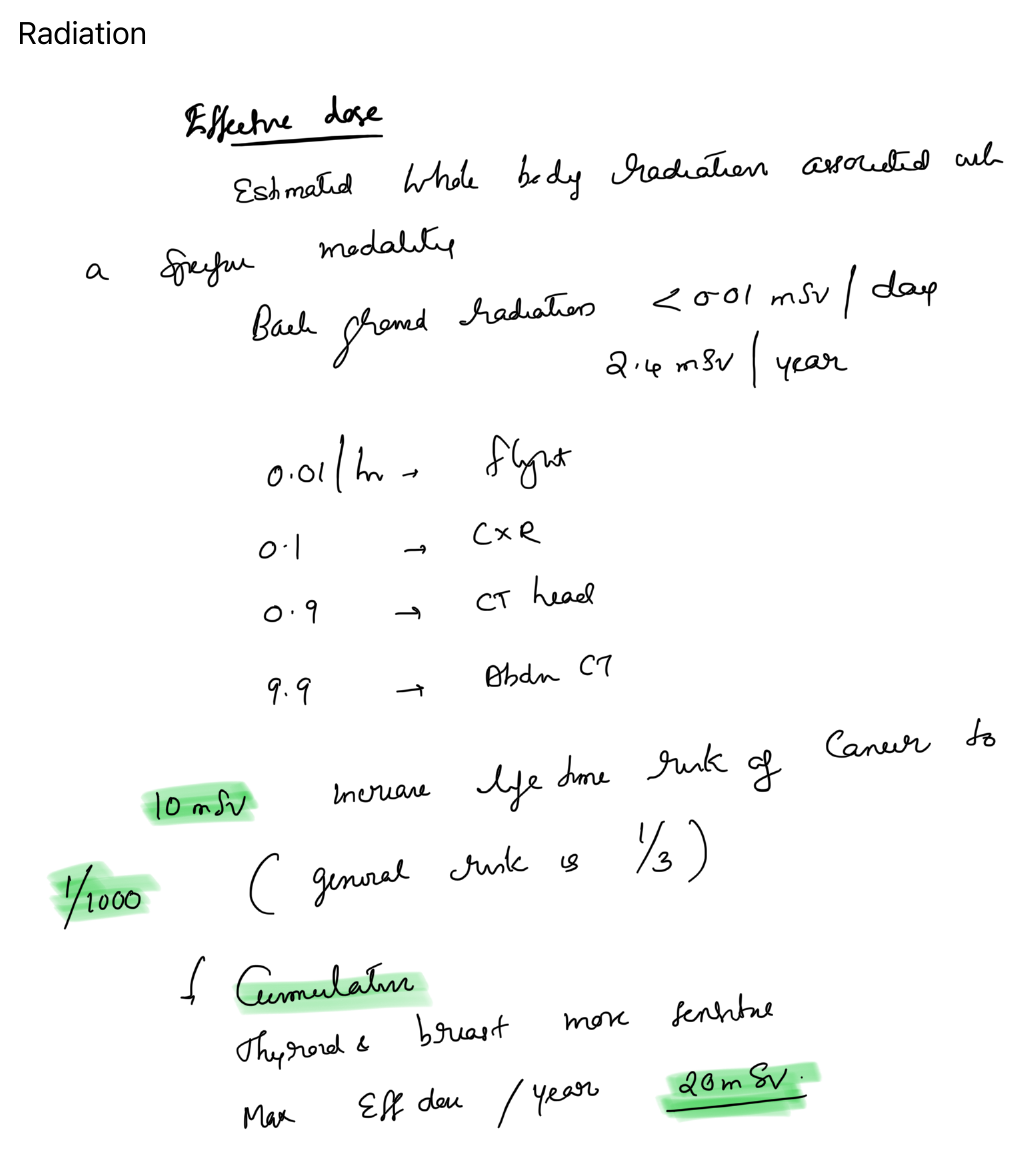 Radiation
Effective dose
Estimated whole body radiation associated with
a specific modality
Back ground radiation < 0.01 mSv / day
2.4 mSv / year
0.01 / hr → flight
0.1 → CXR
0.9 → CT head
9.9 → Abdn CT
10 mSv increase life time risk of Cancer to
1/1000 ( general risk is 1/3 )
Cumulative
Thyroid & breast more sensitive
Max Eff dose / year 20 mSv.